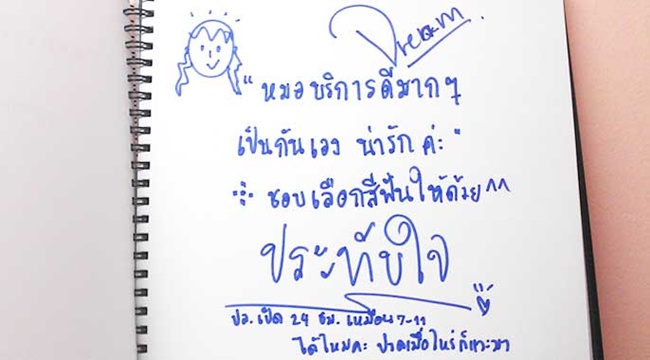 Dream.
"หมอบริการดีมากๆ
เป็นกันเอง น่ารัก ค่ะ"
ชอบเลือกสีฟันให้ด้วย^^
ประทับใจ
ปล.เปิด 24 ชม. เหมือน 7-11
ได้ไหมคะ ปวดเมื่อไหร่ก็แวะมา